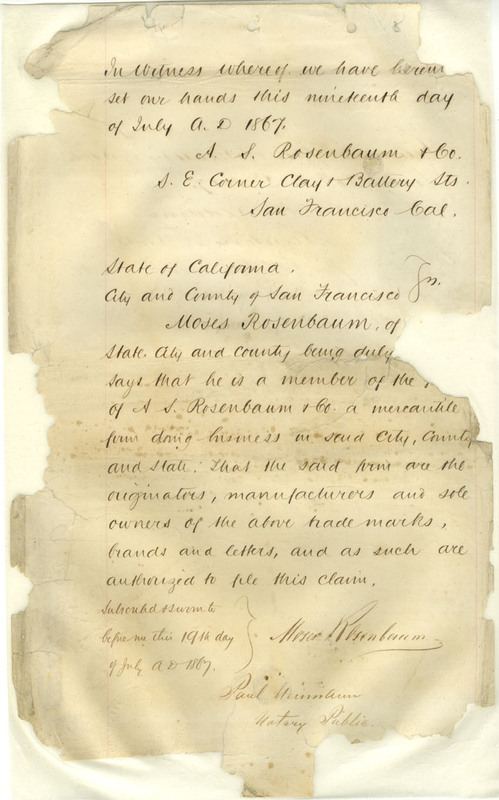 8
In Witness whereof we have herein
set our hands this nineteenth day
of July A. D 1867.
A. S. Rosenbaum & Co.
S. E. Corner Clay & Battery Sts.
San Francisco Cal.
State of California.
City and County of San Francisco } ss.
Moses Rosenbaum, of
State. City and County being duly
says that he is a member of the
of A S. Rosenbaum & Co. a mercantile
firm doing business in said City, County
and State. That the said firm are the
originators, manufacturers and sole
owners of the above trade marks,
brands and letters, and as such are
authorized to file this claim.
Subscribed & sworn to
before me this 19th day
of July A D 1867.
Moses Rosenbaum
Paul
Notary Public.